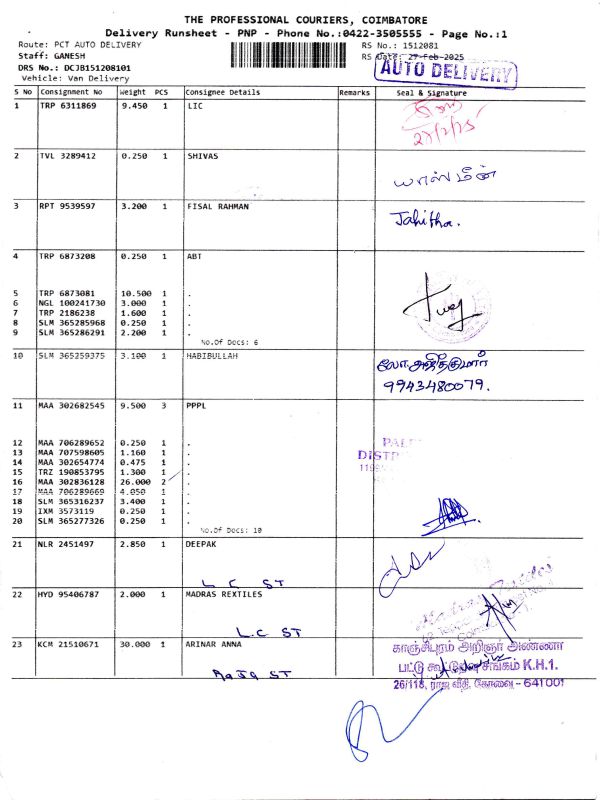 THE PROFESSIONAL COURIERS, COIMBATORE
Delivery Runsheet - PNP - Phone No.:0422-3505555 - Page No.:1
Route: PCT AUTO DELIVERY
RS No.: 1512081
Staff: GANESH
RS Date: 27-Feb-2025
DRS No.: DCJB151208101
AUTO DELIVERY
Vehicle: Van Delivery
S No Consignment No Weight PCS Consignee Details Remarks Seal & Signature
1 TRP 6311869 9.450 1 LIC
27/2/25
2 TVL 3289412 0.250 1 SHIVAS
யாஸ்மீன்
3 RPT 9539597 3.200 1 FISAL RAHMAN
Jahitha.
4 TRP 6873208 0.250 1 ABT
5 TRP 6873081 10.500 1 .
6 NGL 100241730 3.000 1 .
7 TRP 2186238 1.600 1 .
8 SLM 365285968 0.250 1 .
9 SLM 365286291 2.200 1 .
No.Of Docs: 6
10 SLM 365259375 3.100 1 HABIBULLAH
9943480079.
11 MAA 302682545 9.500 3 PPPL
12 MAA 706289652 0.250 1 .
13 MAA 707598605 1.160 1 .
14 MAA 302654774 0.475 1 .
15 TRZ 190853795 1.300 1 .
16 MAA 302836128 26.000 2 .
17 MAA 706289669 4.050 1 .
18 SLM 365316237 3.400 1 .
19 IXM 3573119 0.250 1 .
20 SLM 365277326 0.250 1 .
No.Of Docs: 10
21 NLR 2451497 2.850 1 DEEPAK
L C ST
22 HYD 95406787 2.000 1 MADRAS REXTILES
L.C ST
23 KCM 21510671 30.000 1 ARINAR ANNA
Raja ST
காஞ்சிபுரம் அறிஞர் அண்ணா
பட்டு கூட்டுறவு சங்கம் K.H.1.
26/118, ராஜ வீதி, கோவை - 641 001